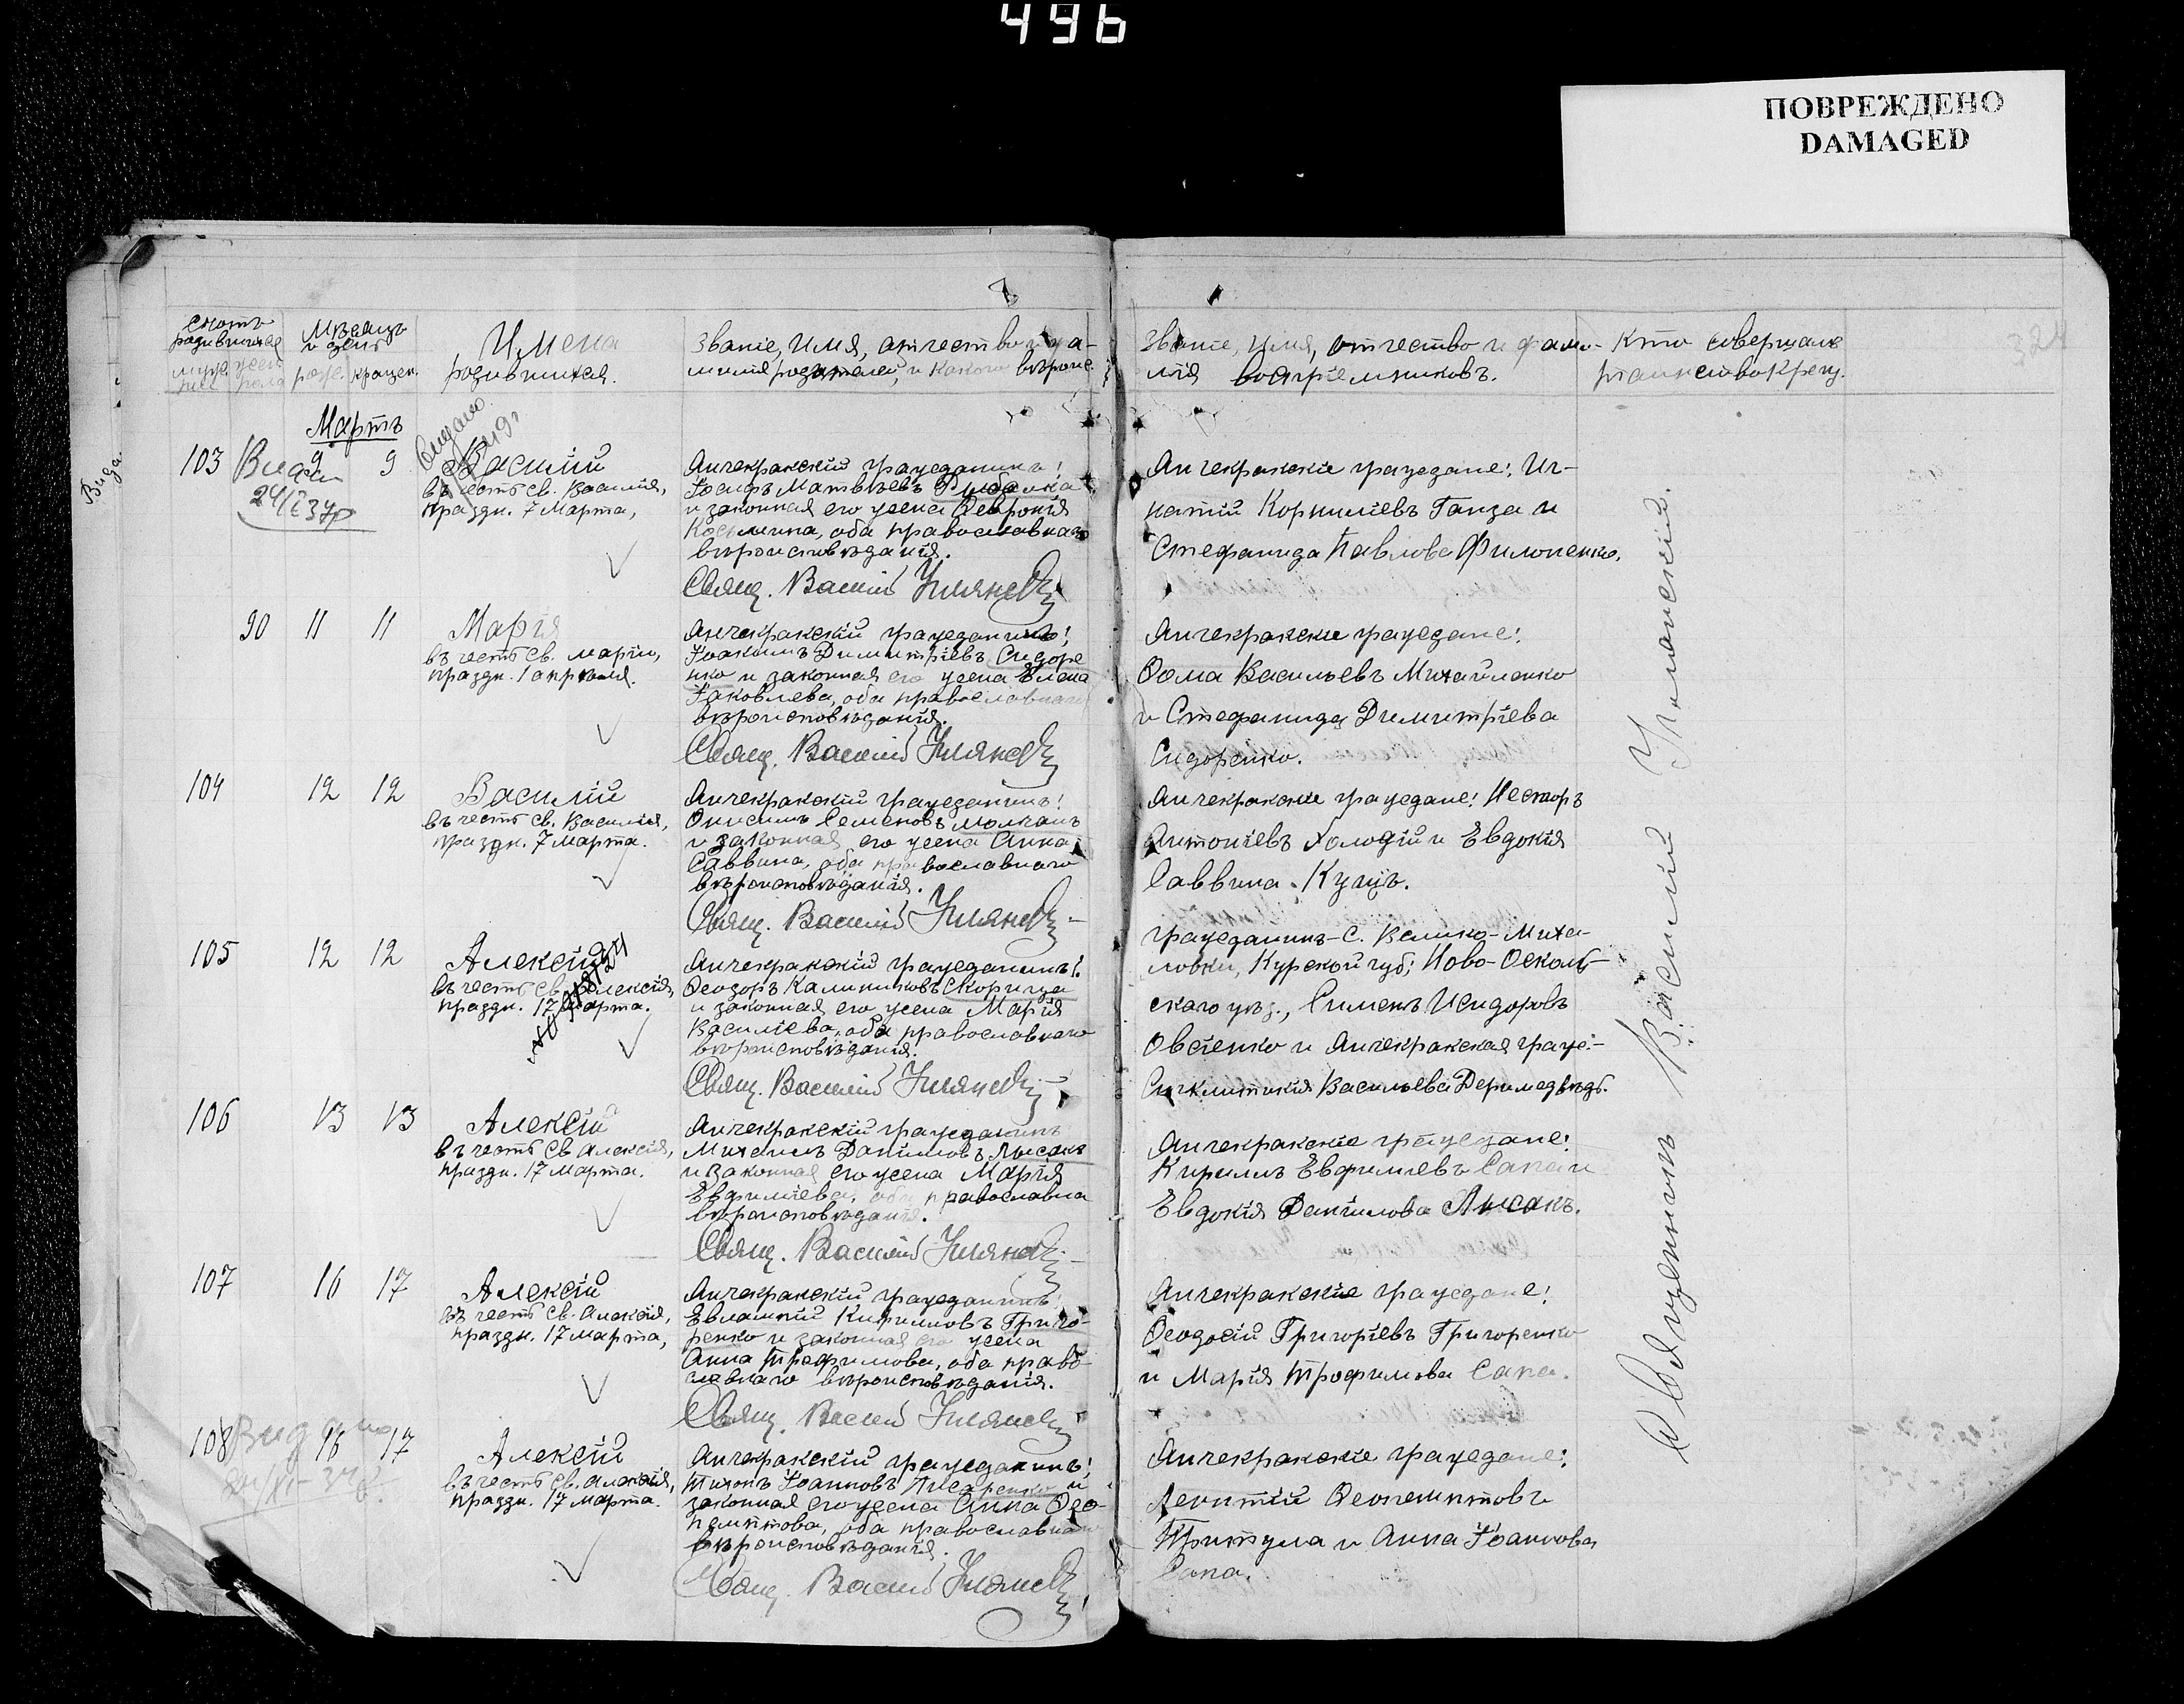 496
ПОВРЕЖДЕНО
DAMAGED
Счотъ родившихся
муж. жен.
Мѣсяцъ и день
рожд. крещен.
Имена
родившихся.
Званіе, имя, отчество и фа-
милія родителей, и какого вѣроис.
Званіе, имя, отчество и фами-
лія воспріемниковъ.
Кто совершалъ
таинство Крещ.
324
Мартъ
Выда
103
9 9
Василій
въ честь св. Василія,
праздн. 7 Марта,
Анчекракскій гражданинъ:
Іосифъ Матвѣевъ Рыбалка
и законная его жена Феvронія
Косьмина, оба православнаго
вѣроисповѣданія.
Свящ. Василій
Анчекракскіе граждане: Иг-
натій Корниліевъ Ганза и
Стефанида Павлова Филоненко.
90 11 11
Марія
въ честь св. Маріи,
праздн. 1 апрѣля.
Анчекракскій гражданинъ:
Іоакимъ Димитріевъ Сидоре
нко и законная его жена Елена
Іаковлева, оба православнаго
вѣроисповѣданія.
Свящ. Василій
Анчекракскіе граждане:
Фома Васильевъ Михайленко
и Стефанида Димитріева
Сидоренко.
104 12 12
Василій
въ честь св. Василія,
праздн. 7 Марта.
Анчекракскій гражданинъ:
Онисимъ Семеновъ Молчанъ
и законная его жена Анна
Саввина, оба православнаго
вѣроисповѣданія.
Свящ. Василій
Анчекракскіе граждане: Несторъ
Антоніевъ Холодій и Евдокія
Саввина Куцъ.
105 12 12
Алексій
въ честь св. Алексія,
праздн. 17 Марта.
Анчекракскій гражданинъ:
Феодоръ Калиниковъ Скорица
и законная его жена Марія
Василіева, оба православнаго
вѣроисповѣданія.
Свящ. Василій
гражданинъ С. Велико-Миха-
ловки, Курской губ; Ново-Осколь-
скаго уѣз., Симеонъ Исидоровъ
Овсіенко и Анчекракская граж:
Синклитикія Васильева Деримедвѣдь.
106 13 13
Алексій
въ честь Св Алексія,
праздн. 17 Марта.
Анчекракскій гражданинъ
Михаилъ Даниловъ Лысакъ
и законная его жена Марія
Евфиміева, оба православна
вѣроисповѣданія.
Свящ. Василій
Анчекракскіе граждане:
Кирилъ Евфиміевъ Сапа и
Евдокія Даниилова Лысакъ.
107 16 17
Алексій
въ честь св. Алексія,
праздн. 17 Марта,
Анчекракскій гражданинъ
Евлампій Кирилловъ Григо-
ренко и законная его жена
Анна Трофимова, оба право-
славнаго вѣроисповѣданія.
Свящ. Василій
Анчекракскіе граждане:
Феодосій Григоріевъ Григоренко
и Марія Трофимова Сапа.
108 16 17
Алексій
въ честь св. Алексія,
праздн. 17 Марта.
Анчекракскій гражданинъ:
Тихонъ Іоанновъ Писаренко и
законная его жена Анна Фео-
пемптова, оба православнаго
вѣроисповѣданія.
Свящ. Василій
Анчекракскіе граждане:
Леонтій Феопемптовъ
Притула и Анна Іоаннова
Сапа.
Священникъ Василій